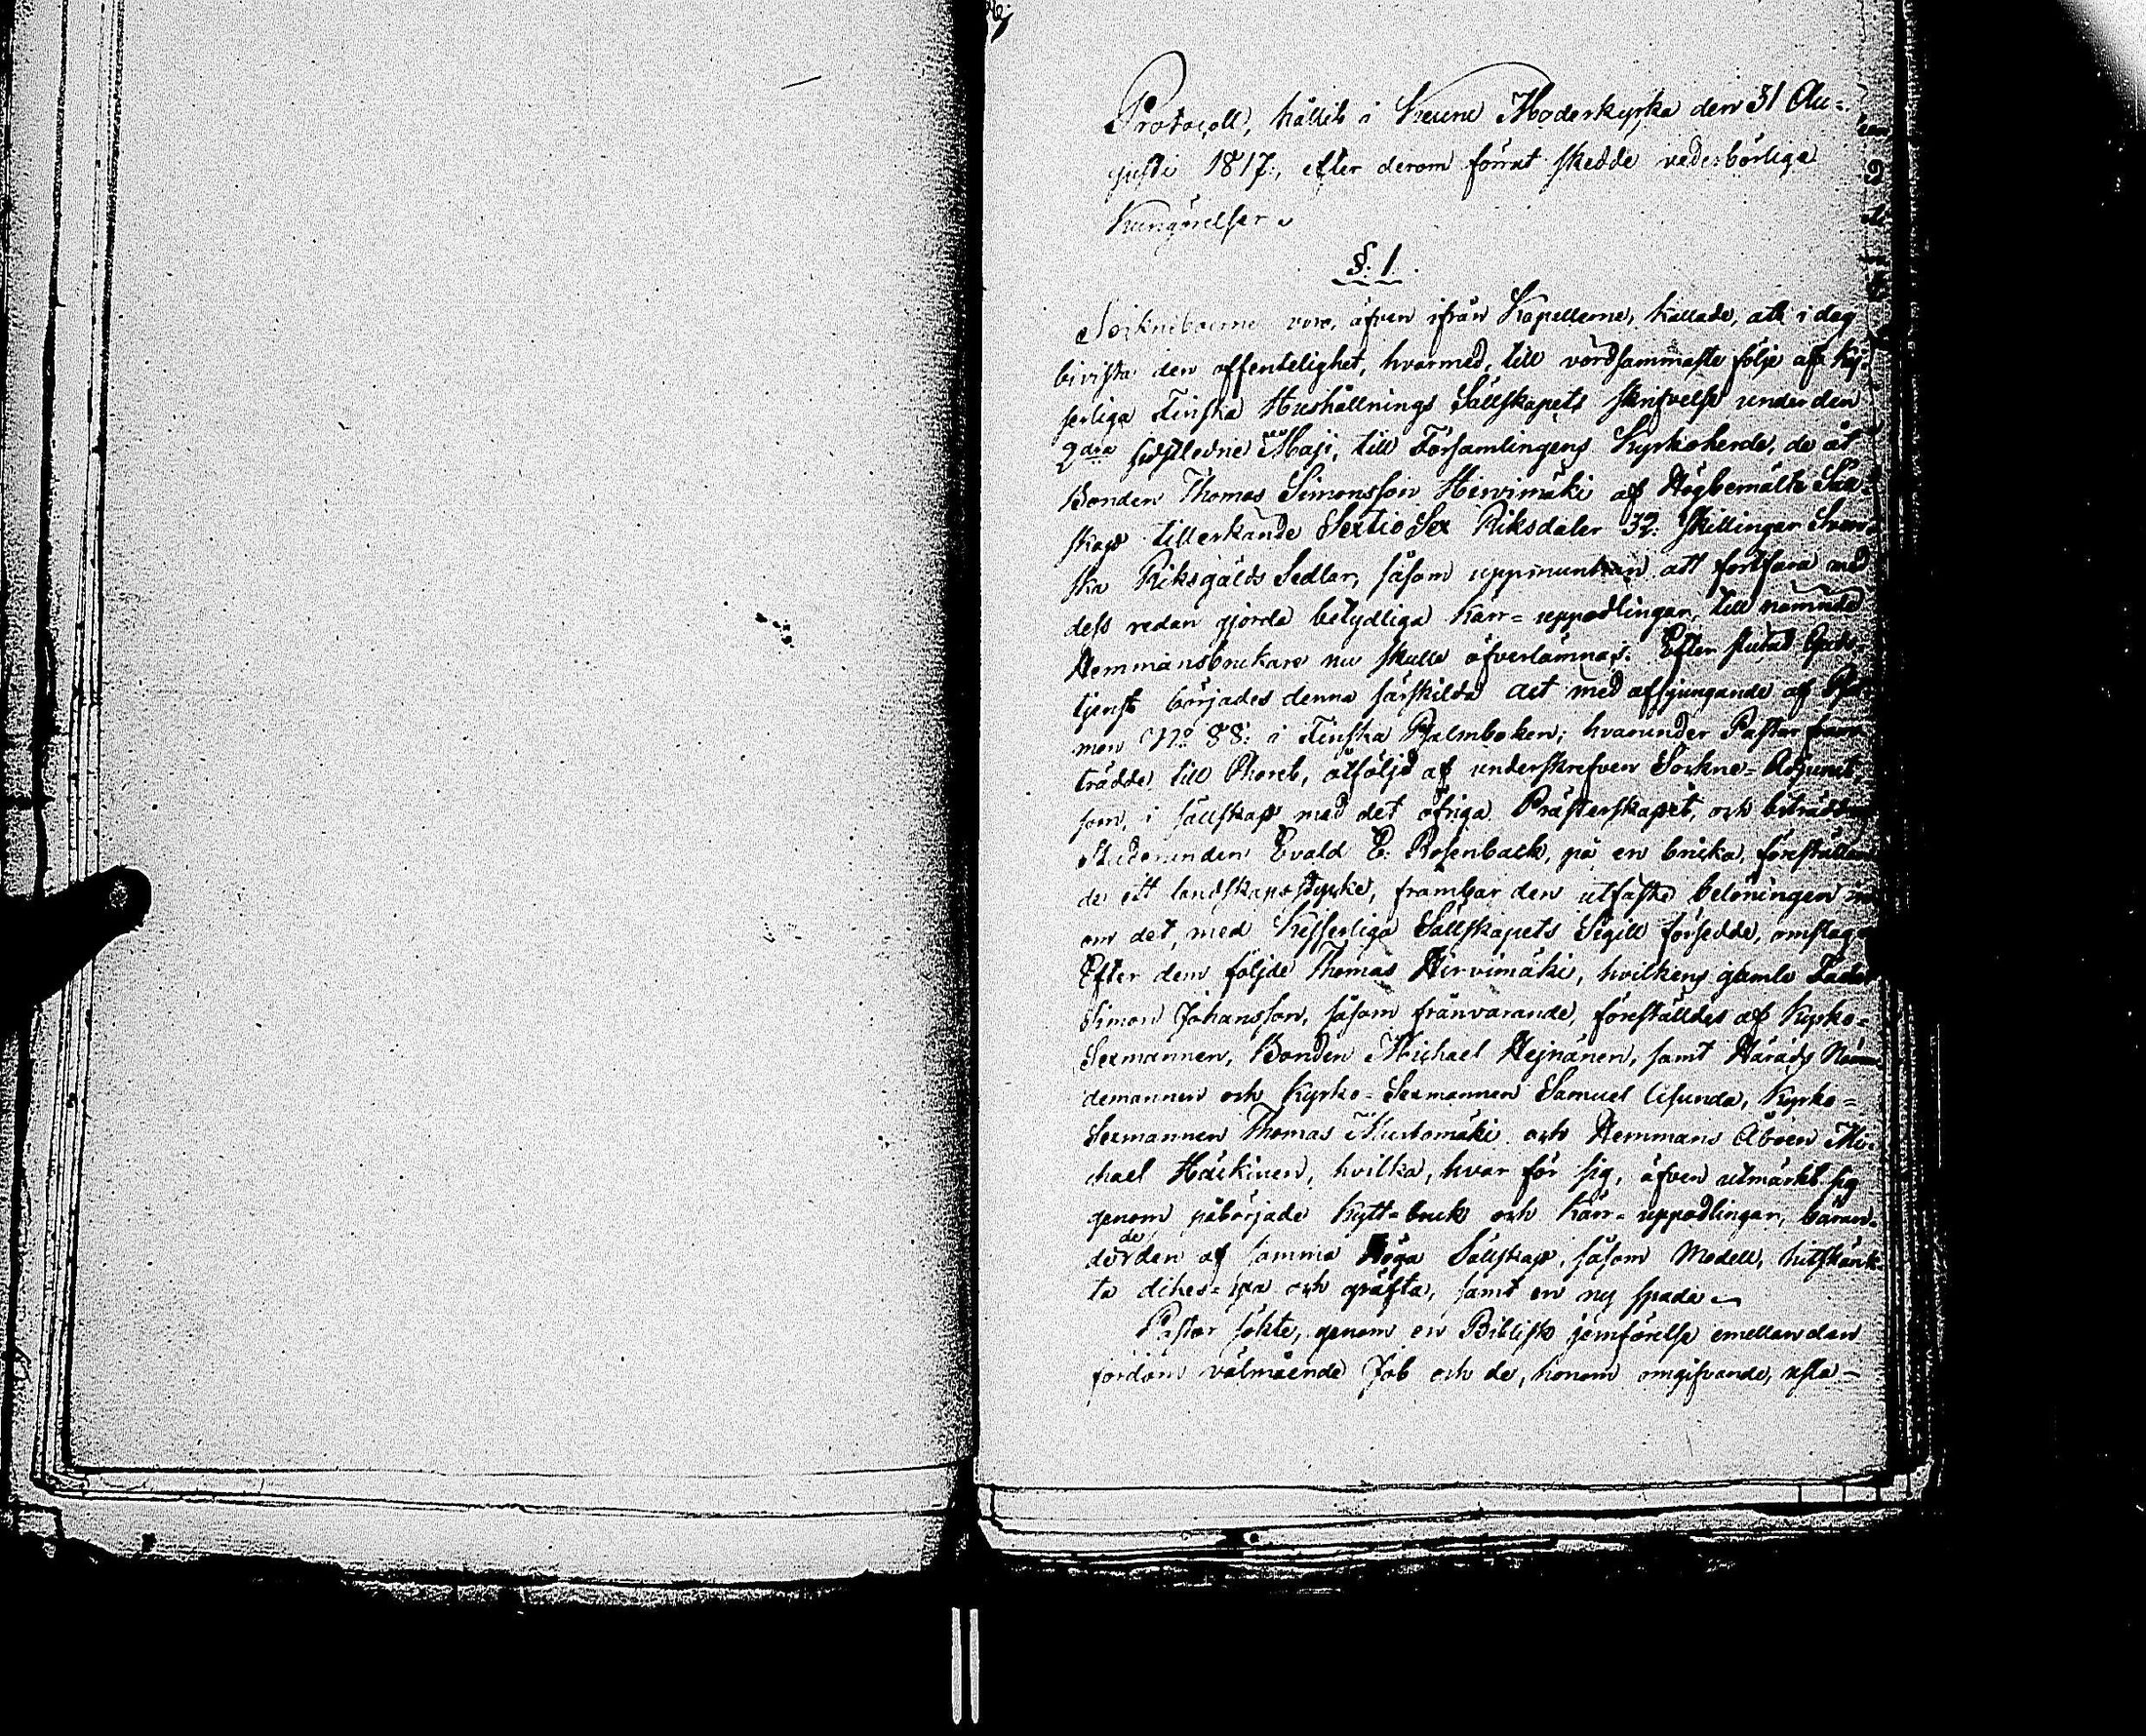 Protocoll, hållit i Keuru Moderkyrka den 31 Au=
gusti 1817, efter derom förut skedde vederbörliga
Kungörelser.
§. 1.
Sockneboerne voro, äfven ifrån Kapellerne, kallade, att i dag
bivista den offentelighet, hvarmed, till vördsammaste följe af Kej-
serliga Finska Hushållnings Sällskapets skrifvelse under den
2dra sidstledne Maji, till Församlingens Kyrkoherde, de åt
Bonden Thomas Simonsson Hirvimäki af Högbemälte Säll-
skap tillerkände Sextio Sex Riksdaler 32. Skillingar Sven-
ska Riksgälds Sedlar, såsom uppmuntran att fortfara med
dess redan gjorda betydliga kärr=uppodlingar, till nämnde
Hemmansbrukare nu skulle öfverlämnas. Efter slutad Guds-
tjenst börjades denna särskilda act med afsjungande af Psal-
men No 88. i Finska Psalmboken; hvarunder Pastor fram-
trädde till Choret, åtföljd af underskrefven Sockne=Adjunct
som, i sällskap med det öfriga Prästerskapet, och biträdd af
Studeranden Evald E. Rosenback, på en bricka, föreställan-
de ett landskapsstycke, frambar den utfäste belöningen in-
om det, med Kejserliga Sällskapets Sigill försedde, omslag.
Efter dem följde Thomas Hirvimäki, hvilkens gamle Fader
Simon Johansson, såsom frånvarande, föreställdes af Kyrko=
Sexmannen, Bonden Michael Hejnänen, samt Härads Nämn-
demannen och Kyrko=Sexmannen Samuel Asunda, Kyrko=
Sexmannen Thomas Mustomäki och Hemmans Åboen Mi-
chael Häckinen, hvilka, hvar för sig, äfven utmärkt sig
genom påbörjade Kytt=bruk och Kärr=uppodlingar, bäran=
de de den af samma Höga Sällskap, såsom Modell, hitskänk-
ta dikes=yxa och gräfta, samt en ny spada.
Pastor sökte, genom en Biblisk jemförelse emellan den
fordom välmående Job och de, honom omgifvande,